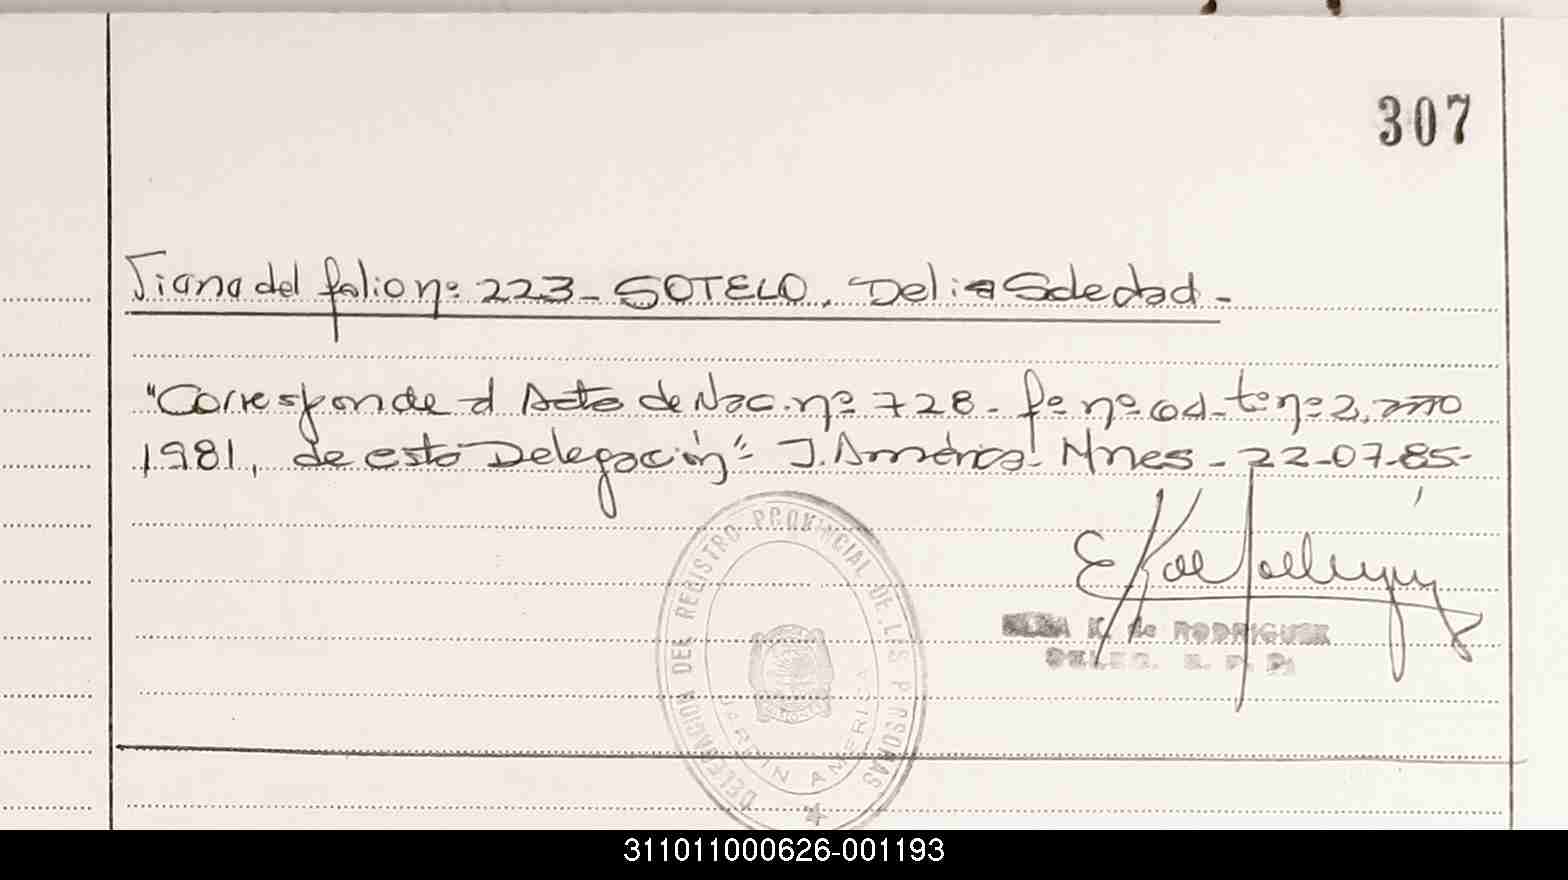 307
Viene del folio nº 223 - SOTELO, Delia Soledad -
"Corresponde al Acta de Nac. nº 728 - fº nº 64 - tº nº 2, año
1981, de esta Delegación" J. América Mnes - 22-07-85-
DELEGACION DEL REGISTRO PROVINCIAL DE LAS PERSONAS
JARDIN AMERICA
K. de RODRIGUEZ
DELEG. R. P. P.
311011000626-001193